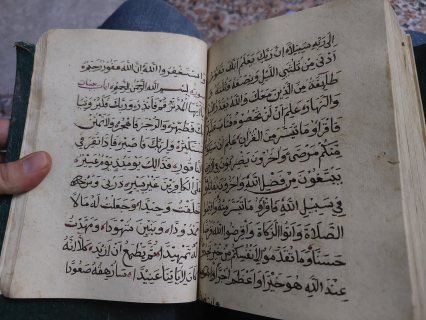 إلى ربه سبيلا إن ربك يعلم أنك تقوم
أدنى من ثلثي الليل ونصفه وثلثه و
طائفة من الذين معك والله يقدر الليل
والنهار علم أن لن تحصوه فتاب عليكم
فاقرؤا ما تيسر من القرآن علم أن سيكون
منكم مرضى وآخرون يضربون في الأرض
يبتغون من فضل الله وآخرون يقاتلون
في سبيل الله فاقرؤا ما تيسر منه وأقيموا
الصلاة وآتوا الزكاة وأقرضوا الله قرضا
حسنا وما تقدموا لأنفسكم من خير تجدوه
عند الله هو خيرا وأعظم أجرا
واستغفروا الله إن الله غفور رحيم
سورة بسم الله الرحمن الرحيم
يا أيها المدثر قم فأنذر وربك فكبر وثيا
بك فطهر والرجز فاهجر ولا تمنن
تستكثر ولربك فاصبر فإذا نقر في
الناقور فذلك يومئذ يوم عسير
على الكافرين غير يسير ذرني ومن
خلقت وحيدا وجعلت له مالا
ممدودا وبنين شهودا ومهدت
له تمهيدا ثم يطمع أن أزيد كلا إنه
كان لآياتنا عنيدا سأرهقه صعودا